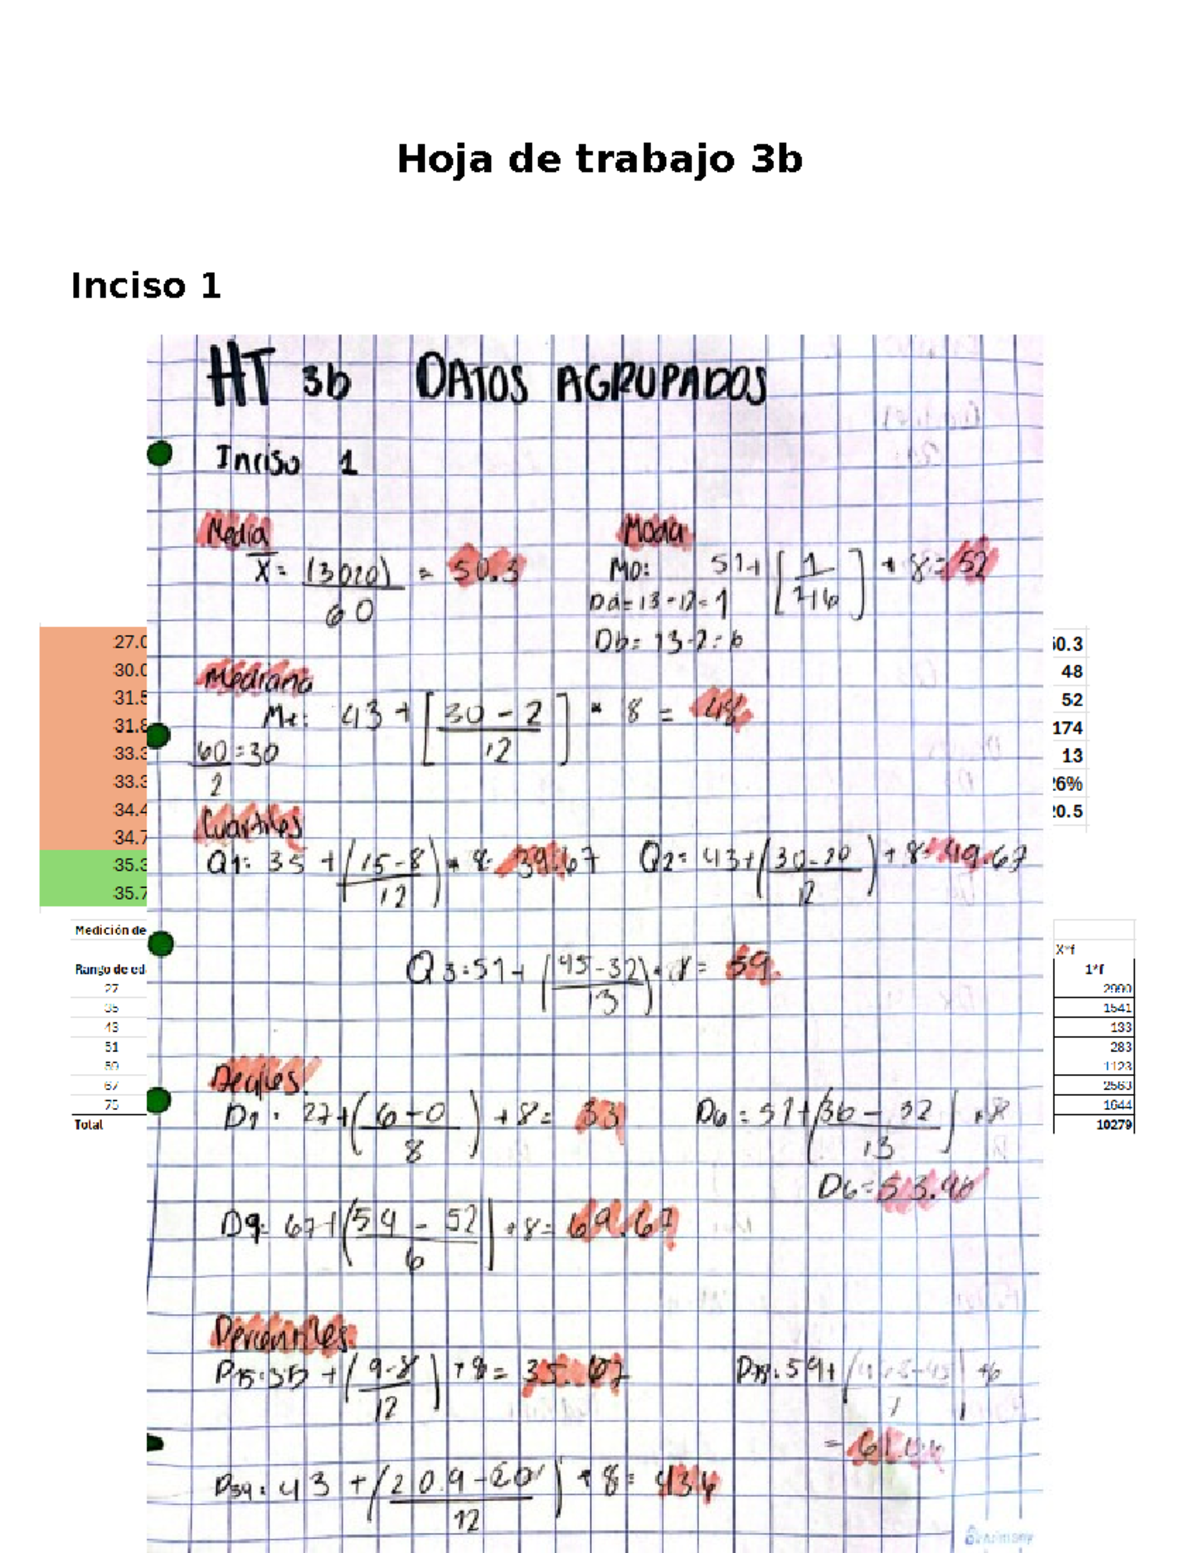 Hoja de trabajo 3b
Inciso 1
HT 3b DATOS AGRUPADOS
Inciso 1
Media
Moda
X̄ = (3020) / 60 = 50.3
Mo: 51+ [1 / 1+6] + 8 = 52
Da = 13-12 = 1
Db = 13-7 = 6
Mediana
Me: 43 + [30 - 2 / 12] * 8 = 48
60 / 2 = 30
Cuartiles
Q1: 35 + (15-8 / 12) * 8 = 39.67 Q2: 43+ (30-20 / 12) + 8 = 49.67
Q3: 51+ (45-32 / 13) * 8 = 59
Deciles
D1: 27+ (6-0 / 8) + 8 = 33 D6 = 51+ (36 - 32 / 13) * 8
D6 = 53.46
D9: 67+ (54 - 52 / 6) + 8 = 69.67
Percentiles
P15: 35 + (9-8 / 12) + 8 = 35.67
P39: 43 + (20.4-20 / 12) + 8 = 43.4
27.0
30.0
31.5
31.8
33.3
33.3
34.4
34.7
35.3
35.7
50.3
48
52
174
13
26%
20.5
Medición de
Rango de ed
27
35
43
51
59
67
75
Total
X*f
1*f
2990
1541
133
283
1123
2563
1644
10279